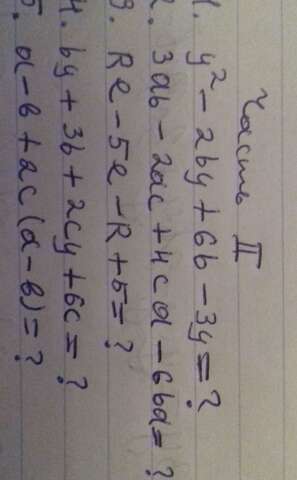 Часть II
1. y² - 2by + 6b - 3y = ?
2. 3ab - 2ac + 4cd - 6bd = ?
3. Re - 5e - R + 5 = ?
4. by + 3b + 2cy + 6c = ?
5. a - b + 2c (a - b) = ?